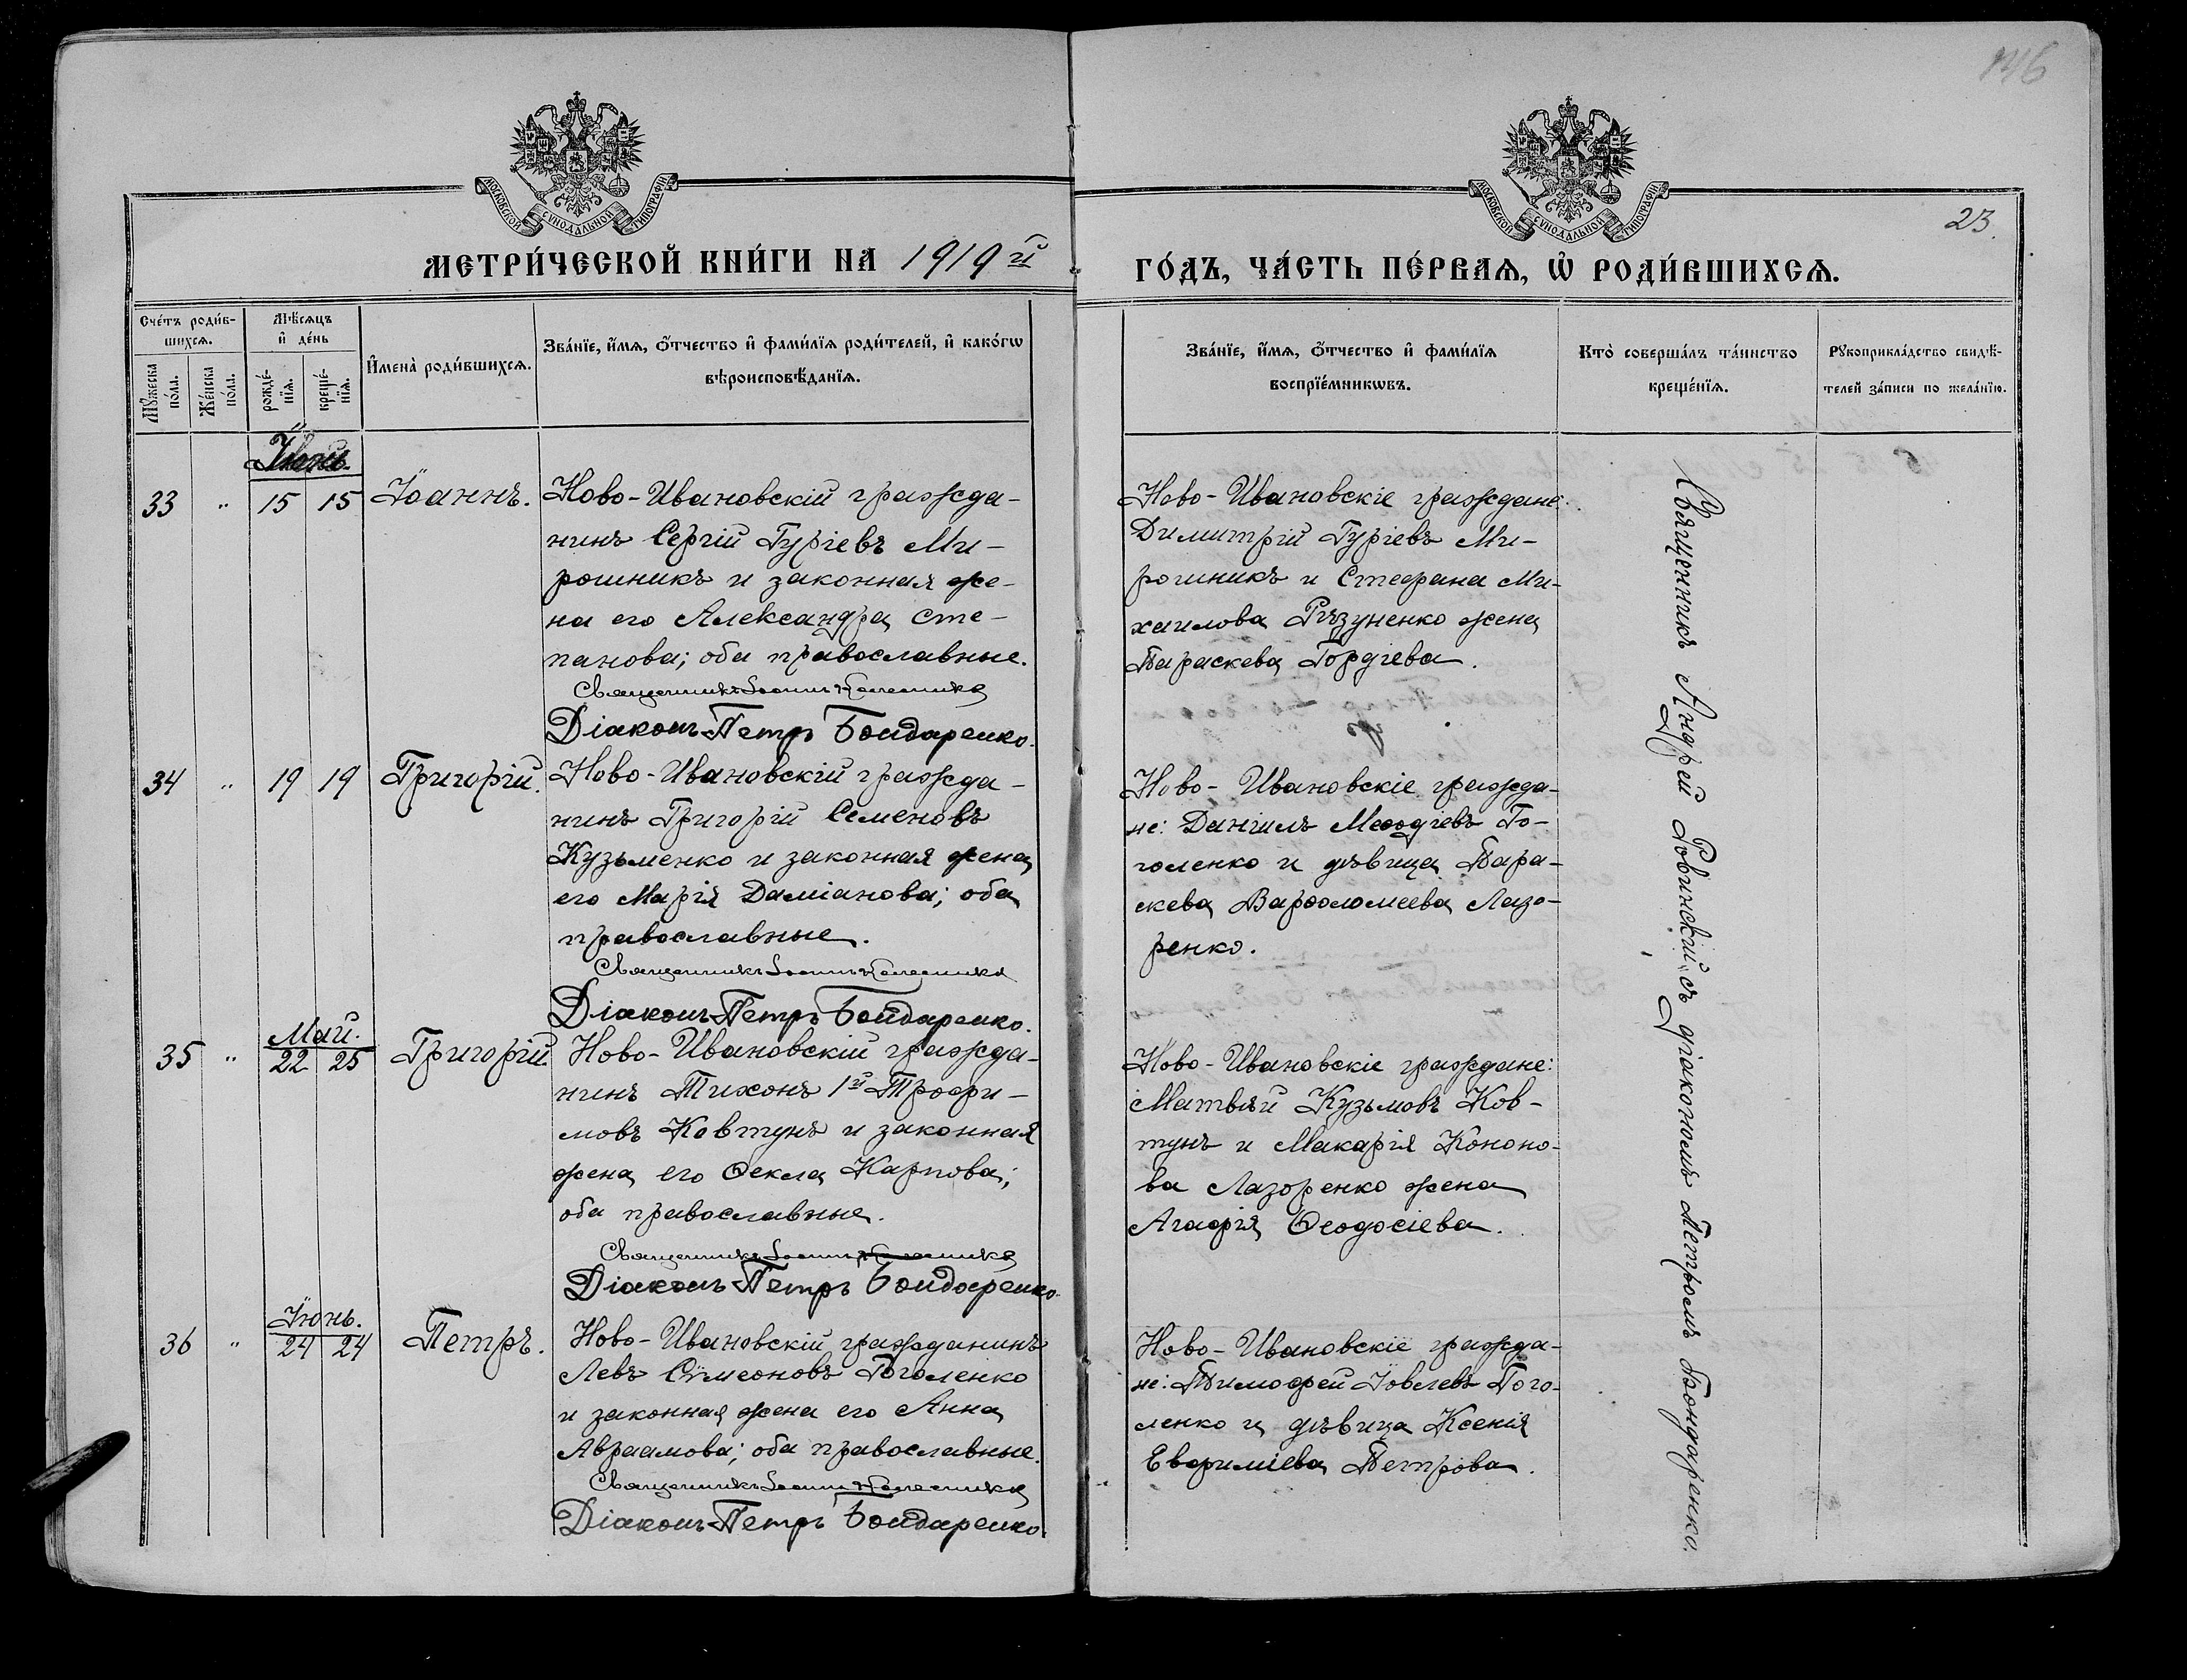 146
МОСКОВСКОЙ СѴНОДАЛЬНОЙ ТИПОГРАФІИ
МОСКОВСКОЙ СѴНОДАЛЬНОЙ ТИПОГРАФІИ
23.
МЕТРИ́ЧЕСКОЙ КНИ́ГИ НА 1919й
ГО́ДЪ, ЧА́СТЬ ПЕ́РВАѦ, Ѡ҆ РОДИ́ВШИХСѦ.
Сче́тъ роди́в-
шихсѧ.
Мѣ́сѧцъ
и҆ де́нь
Мꙋ́жеска
по́ла.
Же́нска
по́ла.
рожде́-
нїѧ.
креще́-
нїѧ.
И҆мена̀ роди́вшихсѧ.
Зва́нїе, и҆́мѧ, ѻ҆́тчество и҆ фами́лїѧ роди́телей, и҆ како́гѡ
вѣроисповѣ́данїѧ.
Зва́нїе, и҆́мѧ, ѻ҆́тчество и҆ фами́лїѧ
воспрїе́мникѡвъ.
Кто̀ соверша́лъ та́инство
креще́нїѧ.
Рꙋкоприкла́дство свидѣ́-
телей за́писи по жела́нїю.
33 " 15 15 Іоаннъ.
Ново-Ивановскій гражда-
нинъ Сергій Гуріевъ Ми-
рошникъ и законная же-
на его Александра Сте-
панова; оба православные.
Священникъ Іоаннъ
Діаконъ Петръ Бондаренко.
Ново-Ивановскіе граждане:
Димитрій Гуріевъ Ми-
рошникъ и Стефана Ми-
хаилова Рѣзуненко жена
Параскева Гордіева.
34 " 19 19 Григорій.
Ново-Ивановскій гражда-
нинъ Григорій Семеновъ
Кузьменко и законная жена
его Марія Даміанова; оба
православные.
Священникъ Іоаннъ
Діаконъ Петръ Бондаренко.
Ново-Ивановскіе гражда-
не: Даніилъ Меѳодіевъ Го-
голенко и дѣвица Пара-
скева Варѳоломеева Лазо-
ренко.
Май.
35 " 22 25 Григорій.
Ново-Ивановскій гражда-
нинъ Тихонъ 1й Трофи-
мовъ Ковтунъ и законная
жена его Ѳекла Карпова;
оба православные.
Священникъ Іоаннъ
Діаконъ Петръ Бондаренко.
Ново-Ивановскіе граждане:
Матвѣй Кузьмовъ Ков-
тунъ и Макарія Конono-
ва Лазоренко жена
Агафія Ѳеодосіева.
Іюнь.
36 " 24 24 Петръ.
Ново-Ивановскій гражданинъ
Левъ Сѵмеоновъ Гоголенко
и законная жена его Анна
Авраамова; оба православные.
Священникъ Іоаннъ
Діаконъ Петръ Бондаренко.
Ново-Ивановскіе гражда-
не: Тимофей Іовлевъ Гого-
ленко и дѣвица Ксенія
Евфиміева Петрова.
Священникъ Андрей Ровинскій съ діакономъ Петромъ Бондаренко.